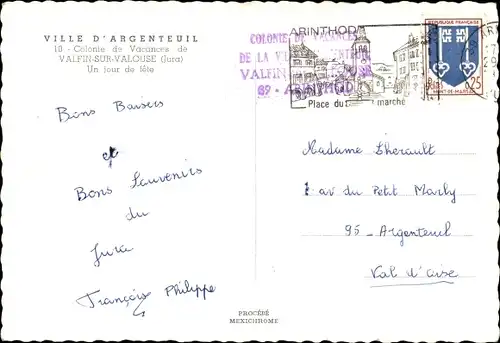 VILLE D'ARGENTEUIL
10. - Colonie de Vacances de
VALFIN-SUR-VALOUSE (Jura)
Un jour de fête
COLONIE DE VACANCES
DE LA VILLE
VALFIN
39 - ARINTHOD
ARINTHOD
Place du marché
REPUBLIQUE FRANÇAISE
0,25
MONT-DE-MARSAN
Bons Baisers
et
Bons Souvenirs
du
Jura
François Philippe
Madame Lherault
1 av du Petit Marly
95 - Argenteuil
Val d'oise
PROCÉDÉ
MEXICHROME